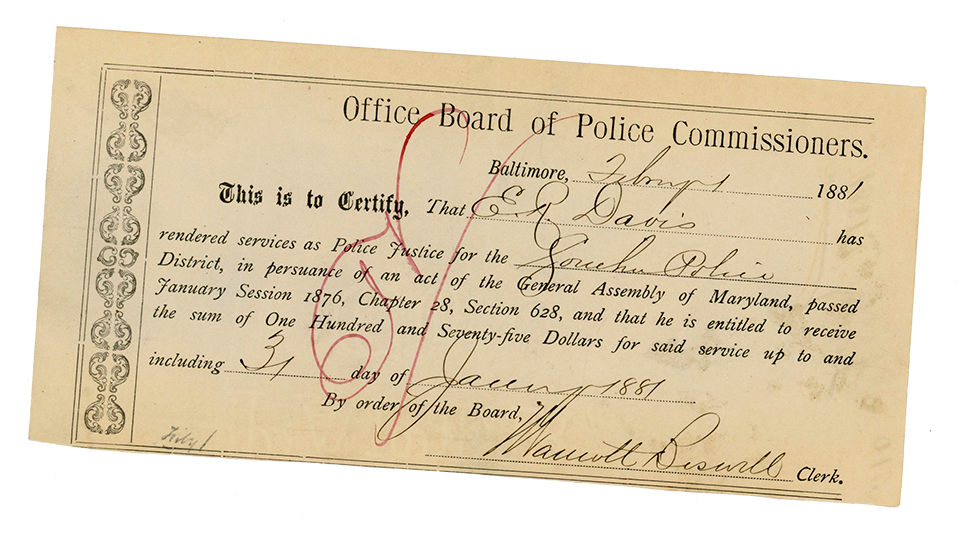 Office Board of Police Commissioners.
Baltimore, 1881
This is to Certify, That E. R. Davis has
rendered services as Police Justice for the Southn Police
District, in persuance of an act of the General Assembly of Maryland, passed
January Session 1876, Chapter 28, Section 628, and that he is entitled to receive
the sum of One Hundred and Seventy-five Dollars for said service up to and
including 31 day of January 1881
By order of the Board,
Clerk.